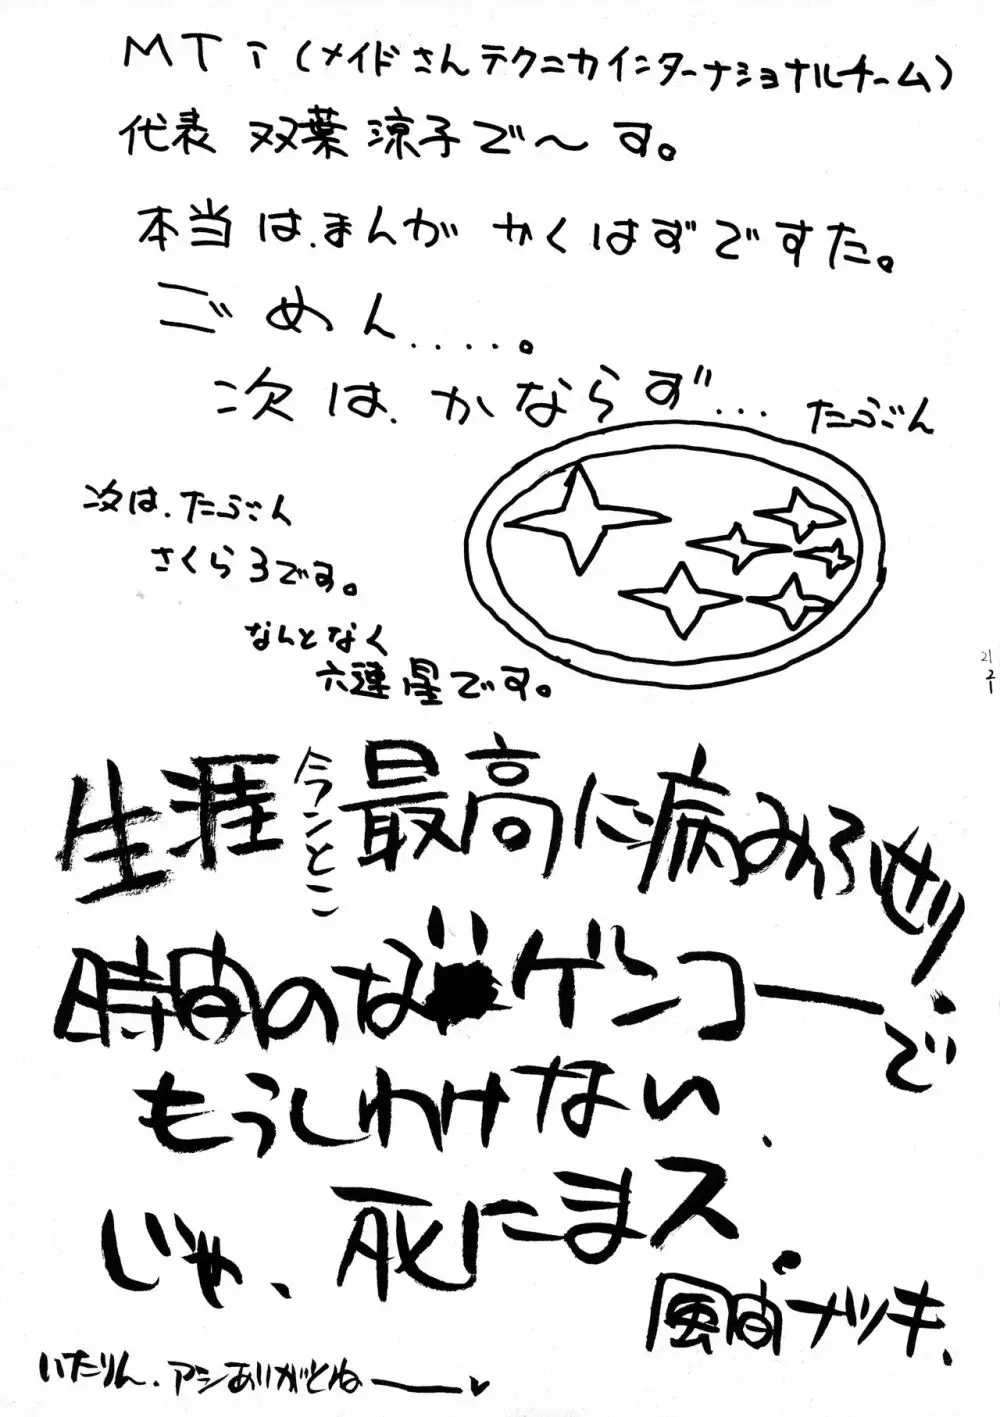 MTi(メイドさんテクニカインターナショナルチーム)
代表 双葉 涼子で〜す。
本当は、まんが かくはずですた。
ごめん.....。
次は、かならず… たぶん
次は、たぶん
さくら3です。
なんとなく
六連星です。
生涯今ンとこ最高に病み
時間のな ゲンコーで
もうしわけない、
じゃ、死にまス。
風間ナツキ、
いたりん、アシありがとね——♥
21